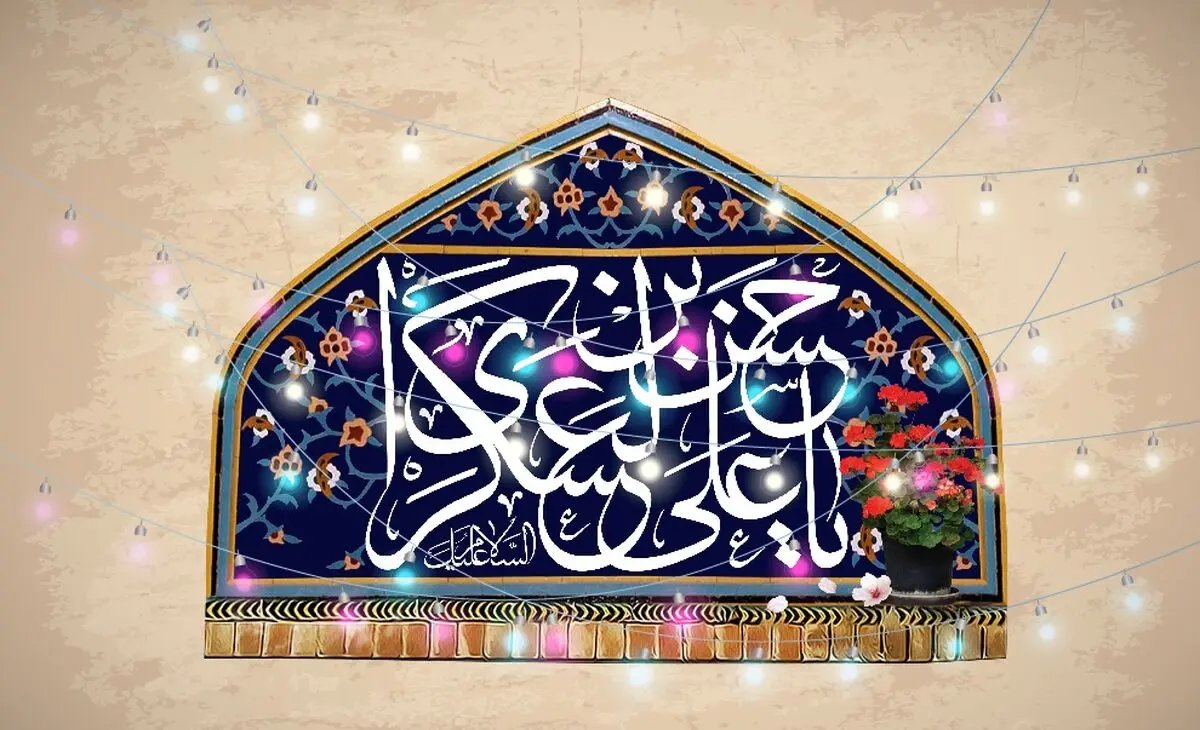 یا حسن بن علی العسکری
السلام علیک